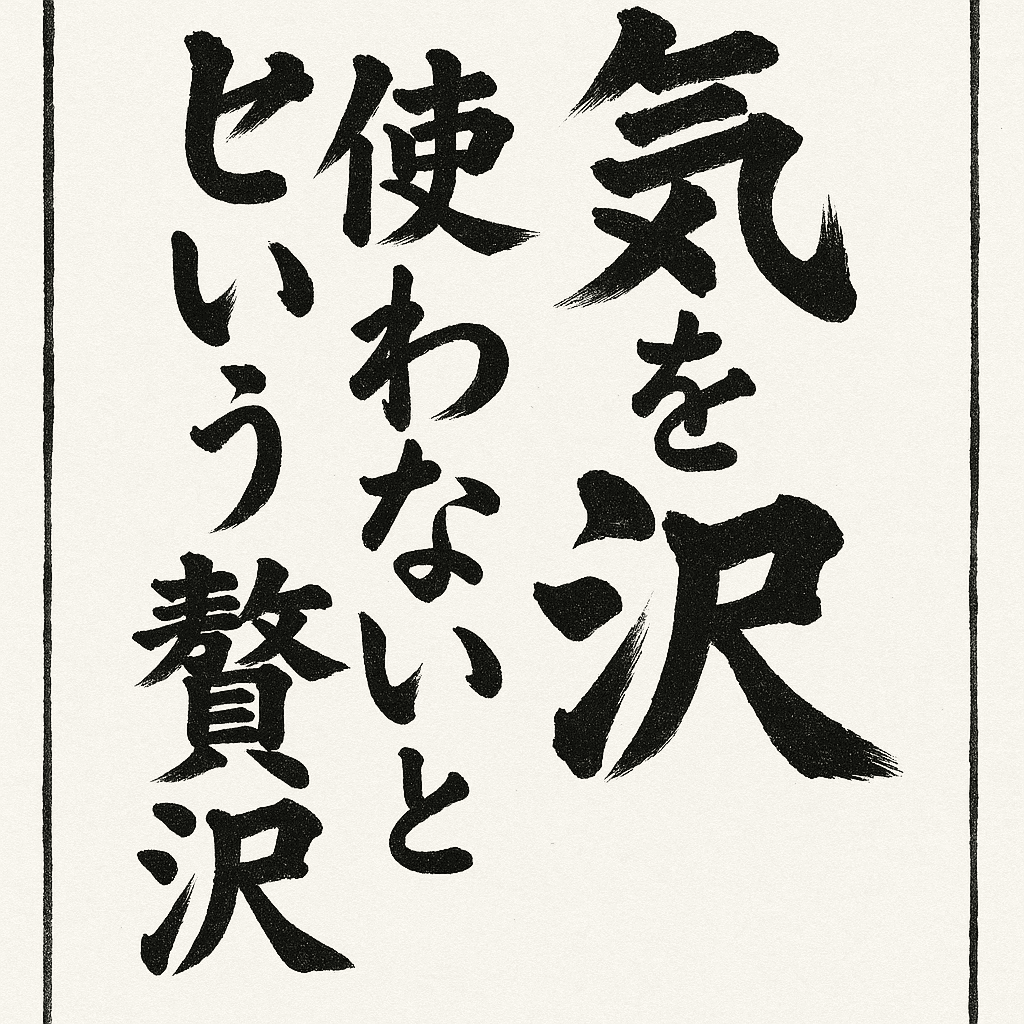 気を沢
使わないと
ヒいう贅沢